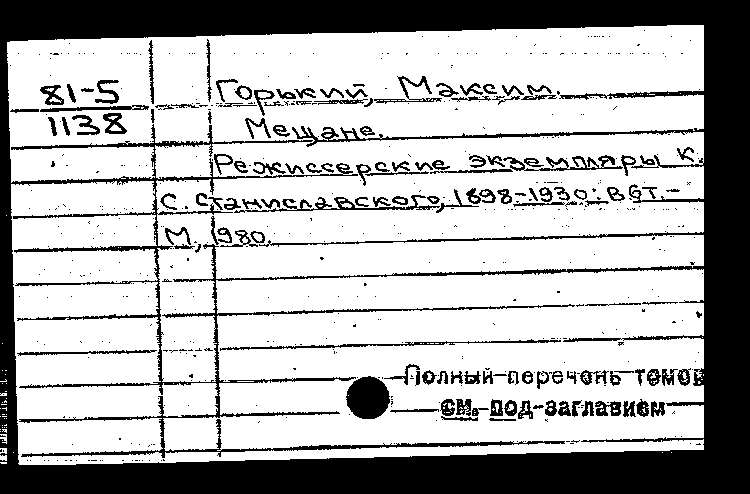 81-5 Горький, Максим.
1138 Мещане.
Режиссерские экземпляры К.
С. Станиславского, 1898-1930: В 6 т.-
М, 1980.
Полный перечень томов
см. под заглавием